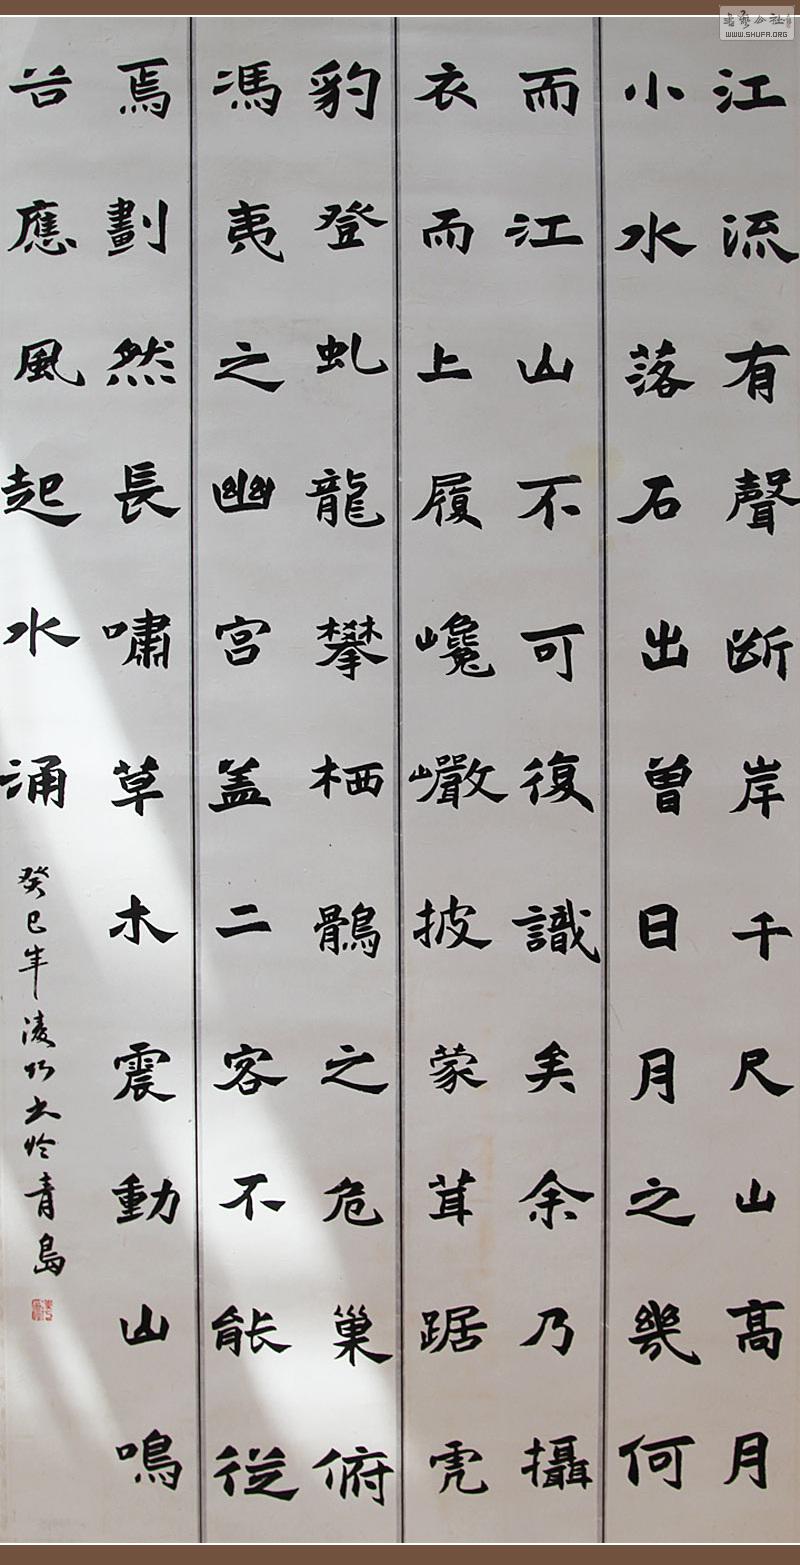 江流有聲断岸千尺山高月
小水落石出曾日月之幾何
而江山不可復識矣余乃攝
衣而上履巉巖披蒙茸踞虎
豹登虬龍攀栖鶻之危巢俯
馮夷之幽宮盖二客不能從
焉劃然長嘯草木震動山鳴
谷應風起水涌
癸巳年凌巧书於青島
書藝公社
WWW.SHUFA.ORG